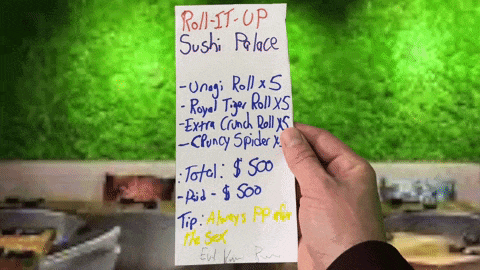 Roll-IT-UP
Sushi Palace
- Unagi Roll x5
- Royal Tiger Roll x5
- Extra Crunch Roll x5
- Cruncy Spider x
: Total: $500
- Paid - $500
Tip: Always PP after
the sex